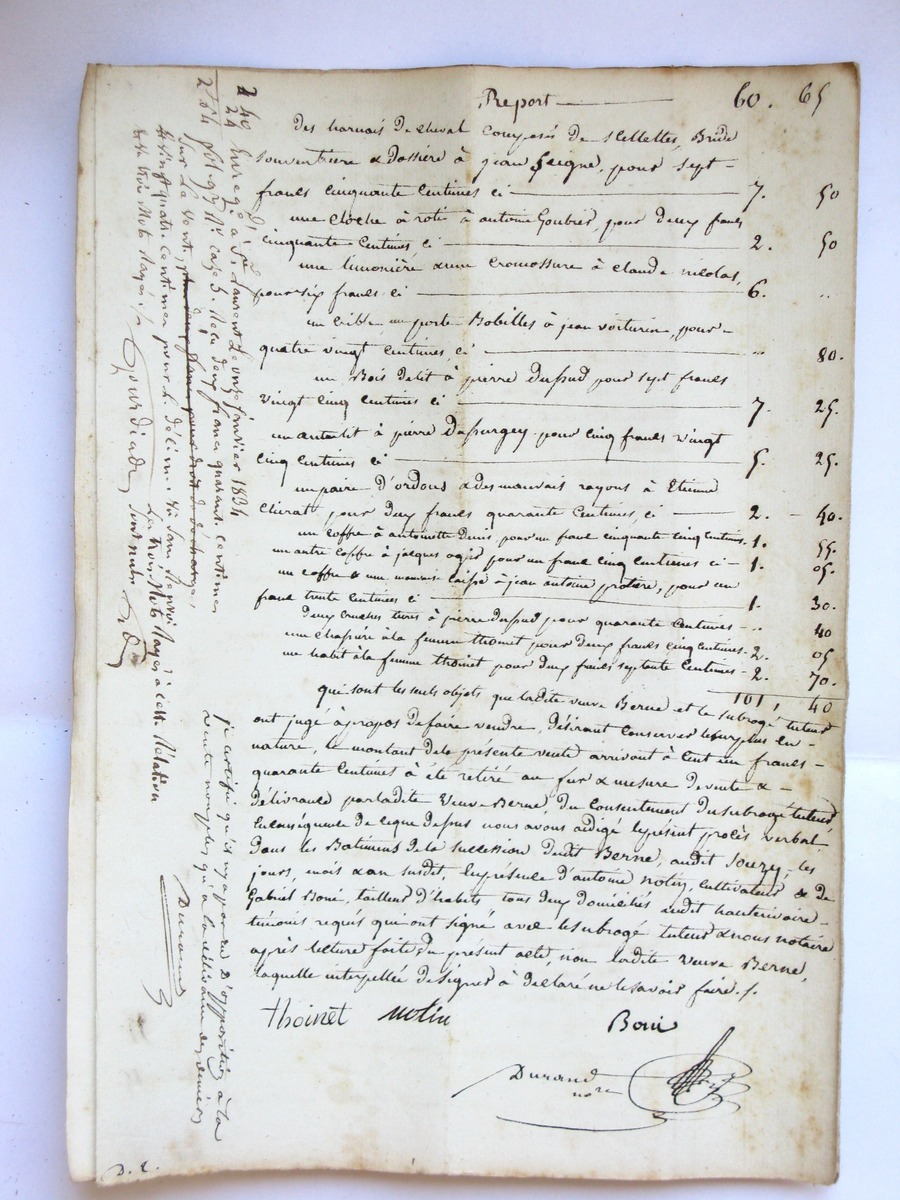 Report 60. 65
des harnais de cheval composés de sellettes, Bride
souventrière & dossière à jean Seigne, pour sept
francs cinquante centimes ci 7. 50
une cloche à roti à antoine Goubier, pour deux francs
cinquante centimes ci 2. 50
une limonière & une cromossure à claude nicolas,
pour six francs ci 6. ..
un crible un porte Bobilles à jean voiturin, pour
quatre vingt centimes, ci .. 80.
un Bois de lit à pierre dupud pour sept francs
vingt cinq centimes ci 7. 25.
un autre lit à pierre pour cinq francs vingt
cinq centimes ci 5. 25.
une paire d'ordons & des mauvais rayons à Etienne
clairat pour deux francs quarante centimes, ci 2. 40.
un coffre à antoinette Denis pour un franc cinquante cinq centimes. 1. 55.
un autre coffre à jacques ogier pour un franc cinq centimes ci 1. 05.
un coffre & une mauvaise caisse à jean antoine protère, pour un
franc trente centimes ci 1. 30.
deux cruches à pierre dupud pour quarante centimes .. 40
une chapière à la femme thoinet pour deux francs cinq centimes. 2. 05
un habit à la femme thoinet pour deux francs septante centimes 2. 70.
101, 40
qui sont les seuls objets que ladite veuve Berne et le subrogé tuteur
ont jugé à propos de faire vendre, désirant conserver le surplus en
nature, le montant de la presente vente arrivant à cent un francs
quarante centimes à été retiré au fur & mesure de vente &
délivrance par ladite veuve Berne du consentement du subrogé tuteur
En conséquence de ce que dessus nous avons rédigé le présent procès verbal
dans les Batimens de la succession dudit Berne, audit Souzy, les
jours, mois & an susdit, En présence d'antoine notin, cultivateur & de
Gabriel Boné, tailleur d'habits tous deux domiciliés audit hauterivoire
témoins requis qui ont signé avec le subrogé tuteur & nous notaire
après lecture faite du présent acte, non ladite veuve Berne,
laquelle interpellée de signer à déclaré ne le savoir faire ./.
thoinet notin Boné
Durand
nore
2 40
24
2 64
Enregé à St Laurent le onze février 1834
fol. 97 Vo case 5. Reçu deux francs quarante centimes
sur la vente,
& vingt quatre centimes pour le décime.
je certifie qu'il n'y a pas eu d'opposition à la
vente non plus qu'à la délivrance des deniers
Durand
D. L.